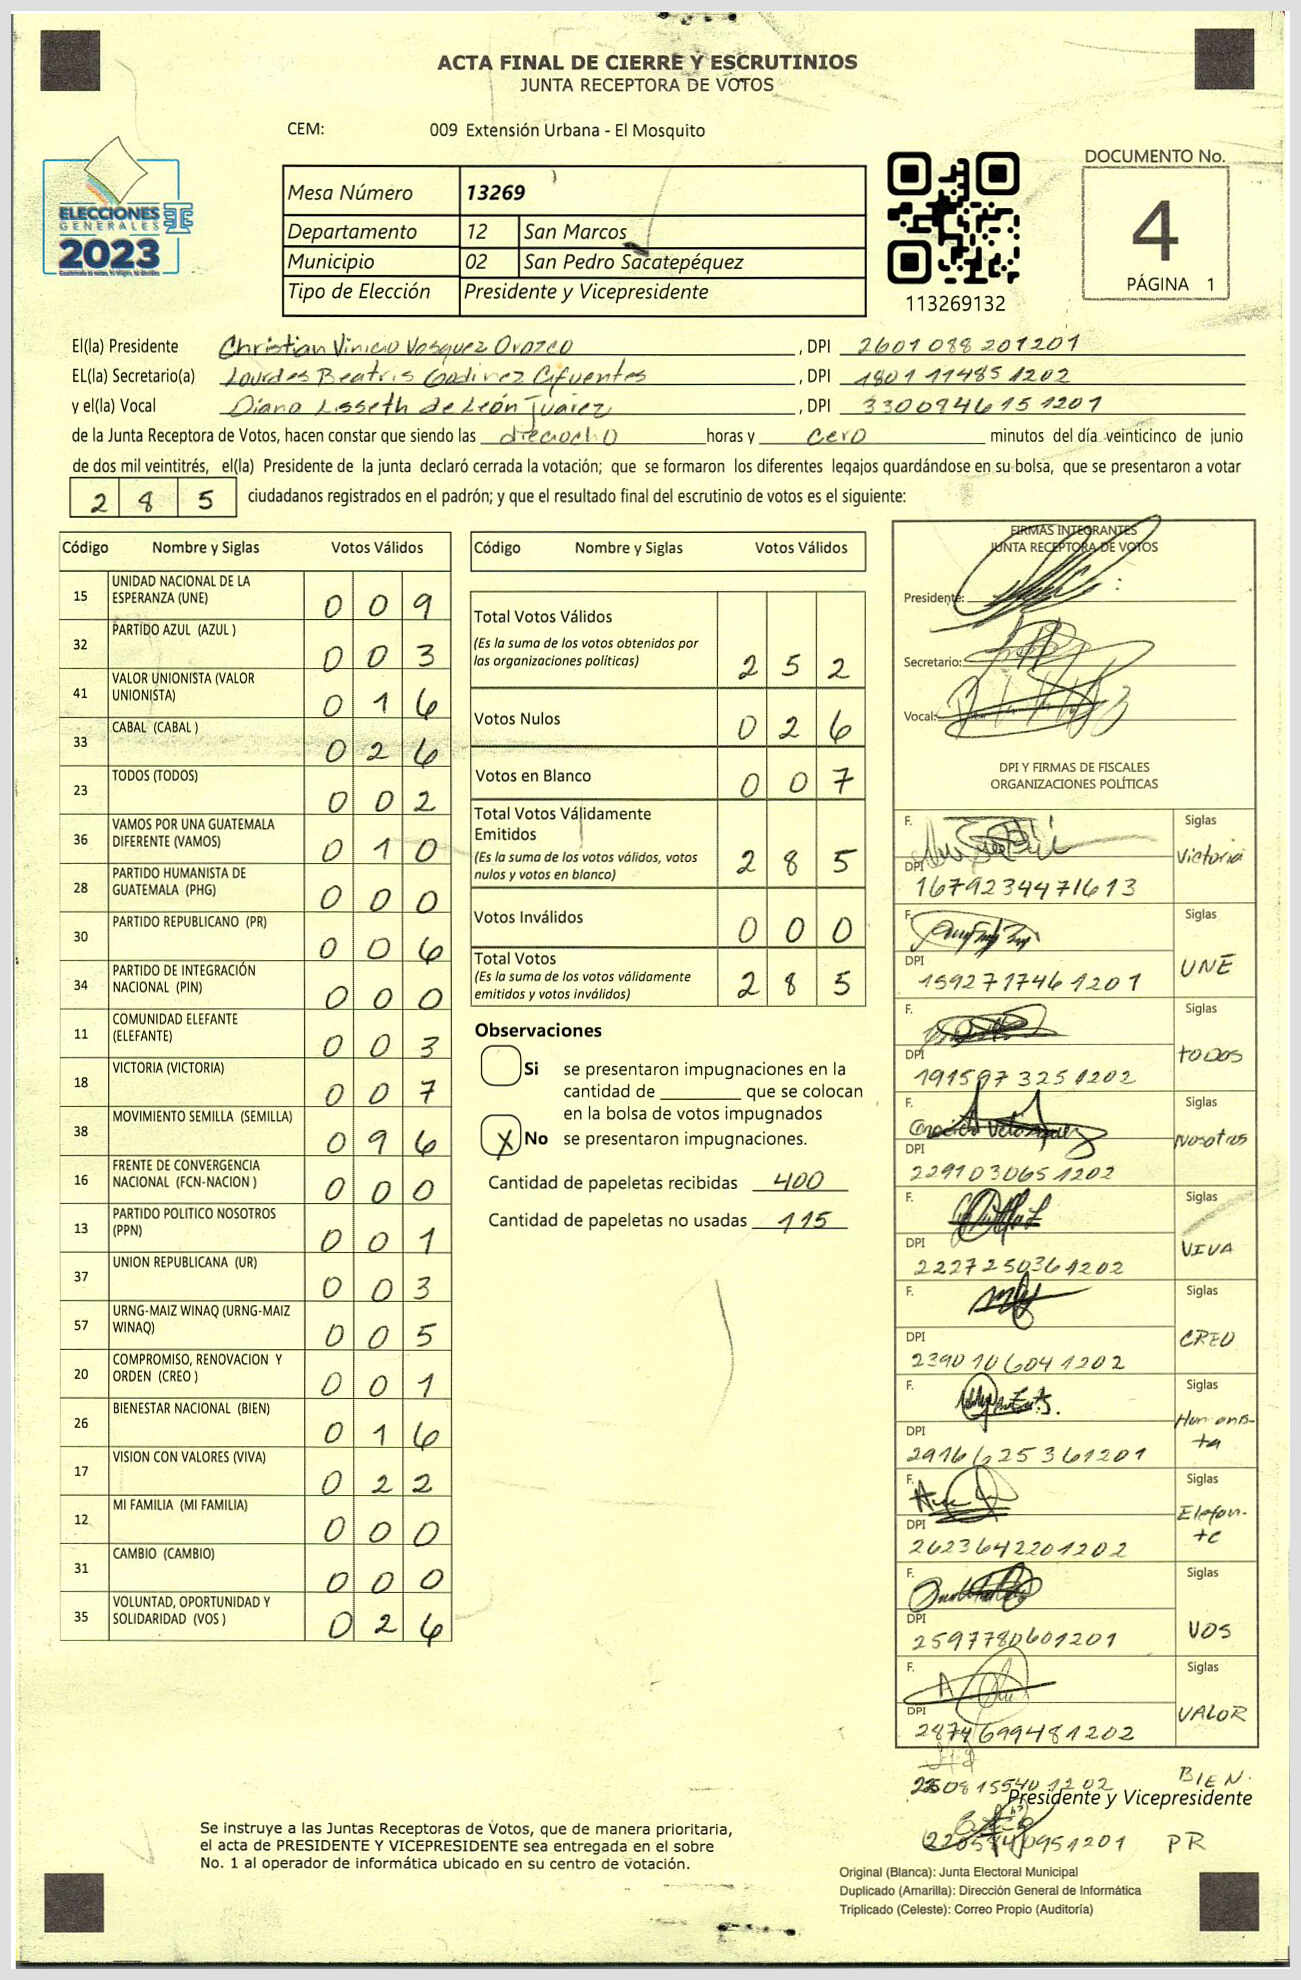 ACTA FINAL DE CIERRE Y ESCRUTINIOS
JUNTA RECEPTORA DE VOTOS
CEM: 009 Extensión Urbana - El Mosquito
ELECCIONES
GENERALES
2023
Mesa Número 13269
Departamento 12 San Marcos
Municipio 02 San Pedro Sacatepéquez
Tipo de Elección Presidente y Vicepresidente
113269132
DOCUMENTO No.
4
PÁGINA 1
El(la) Presidente Christian Vinicio Vasquez Orozco, DPI 2601088201201
EL(la) Secretario(a) Lourdes Beatris Godinez Cifuentes, DPI 1801114851202
y el(la) Vocal Diana Lisseth de León Juárez, DPI 3300946151201
de la Junta Receptora de Votos, hacen constar que siendo las dieciocho horas y cero minutos del día veinticinco de junio
de dos mil veintitrés, el(la) Presidente de la junta declaró cerrada la votación; que se formaron los diferentes legajos guardándose en su bolsa, que se presentaron a votar
285 ciudadanos registrados en el padrón; y que el resultado final del escrutinio de votos es el siguiente:
Código Nombre y Siglas Votos Válidos
15 UNIDAD NACIONAL DE LA ESPERANZA (UNE) 009
32 PARTIDO AZUL (AZUL ) 003
41 VALOR UNIONISTA (VALOR UNIONISTA) 016
33 CABAL (CABAL ) 026
23 TODOS (TODOS) 002
36 VAMOS POR UNA GUATEMALA DIFERENTE (VAMOS) 010
28 PARTIDO HUMANISTA DE GUATEMALA (PHG) 000
30 PARTIDO REPUBLICANO (PR) 006
34 PARTIDO DE INTEGRACIÓN NACIONAL (PIN) 000
11 COMUNIDAD ELEFANTE (ELEFANTE) 003
18 VICTORIA (VICTORIA) 007
38 MOVIMIENTO SEMILLA (SEMILLA) 096
16 FRENTE DE CONVERGENCIA NACIONAL (FCN-NACION ) 000
13 PARTIDO POLITICO NOSOTROS (PPN) 001
37 UNION REPUBLICANA (UR) 003
57 URNG-MAIZ WINAQ (URNG-MAIZ WINAQ) 005
20 COMPROMISO, RENOVACION Y ORDEN (CREO ) 001
26 BIENESTAR NACIONAL (BIEN) 016
17 VISION CON VALORES (VIVA) 022
12 MI FAMILIA (MI FAMILIA) 000
31 CAMBIO (CAMBIO) 000
35 VOLUNTAD, OPORTUNIDAD Y SOLIDARIDAD (VOS ) 026
Código Nombre y Siglas Votos Válidos
Total Votos Válidos
(Es la suma de los votos obtenidos por
las organizaciones políticas) 252
Votos Nulos 026
Votos en Blanco 007
Total Votos Válidamente
Emitidos
(Es la suma de los votos válidos, votos
nulos y votos en blanco) 285
Votos Inválidos 000
Total Votos
(Es la suma de los votos válidamente
emitidos y votos inválidos) 285
Observaciones
Si se presentaron impugnaciones en la
cantidad de ________ que se colocan
en la bolsa de votos impugnados
X No se presentaron impugnaciones.
Cantidad de papeletas recibidas 400
Cantidad de papeletas no usadas 115
FIRMAS INTEGRANTES
JUNTA RECEPTORA DE VOTOS
Presidente:
Secretario:
Vocal:
DPI Y FIRMAS DE FISCALES
ORGANIZACIONES POLÍTICAS
F. Siglas
DPI Victoria
1679234471613
F. Siglas
DPI UNE
1592717461201
F. Siglas
DPI TODOS
1915973251202
F. Siglas
DPI Nosotros
2291030651202
F. Siglas
DPI VIVA
2227250361202
F. Siglas
DPI CREO
2390106041202
F. Siglas
DPI Humanis-
ta
2916625361201
F. Siglas
DPI Elefan-
te
2623642201202
F. Siglas
DPI VOS
2597780601201
F. Siglas
DPI VALOR
2874699481202
BIEN.
Presidente y Vicepresidente
PR
Se instruye a las Juntas Receptoras de Votos, que de manera prioritaria,
el acta de PRESIDENTE Y VICEPRESIDENTE sea entregada en el sobre
No. 1 al operador de informática ubicado en su centro de votación.
Original (Blanca): Junta Electoral Municipal
Duplicado (Amarilla): Dirección General de Informática
Triplicado (Celeste): Correo Propio (Auditoría)